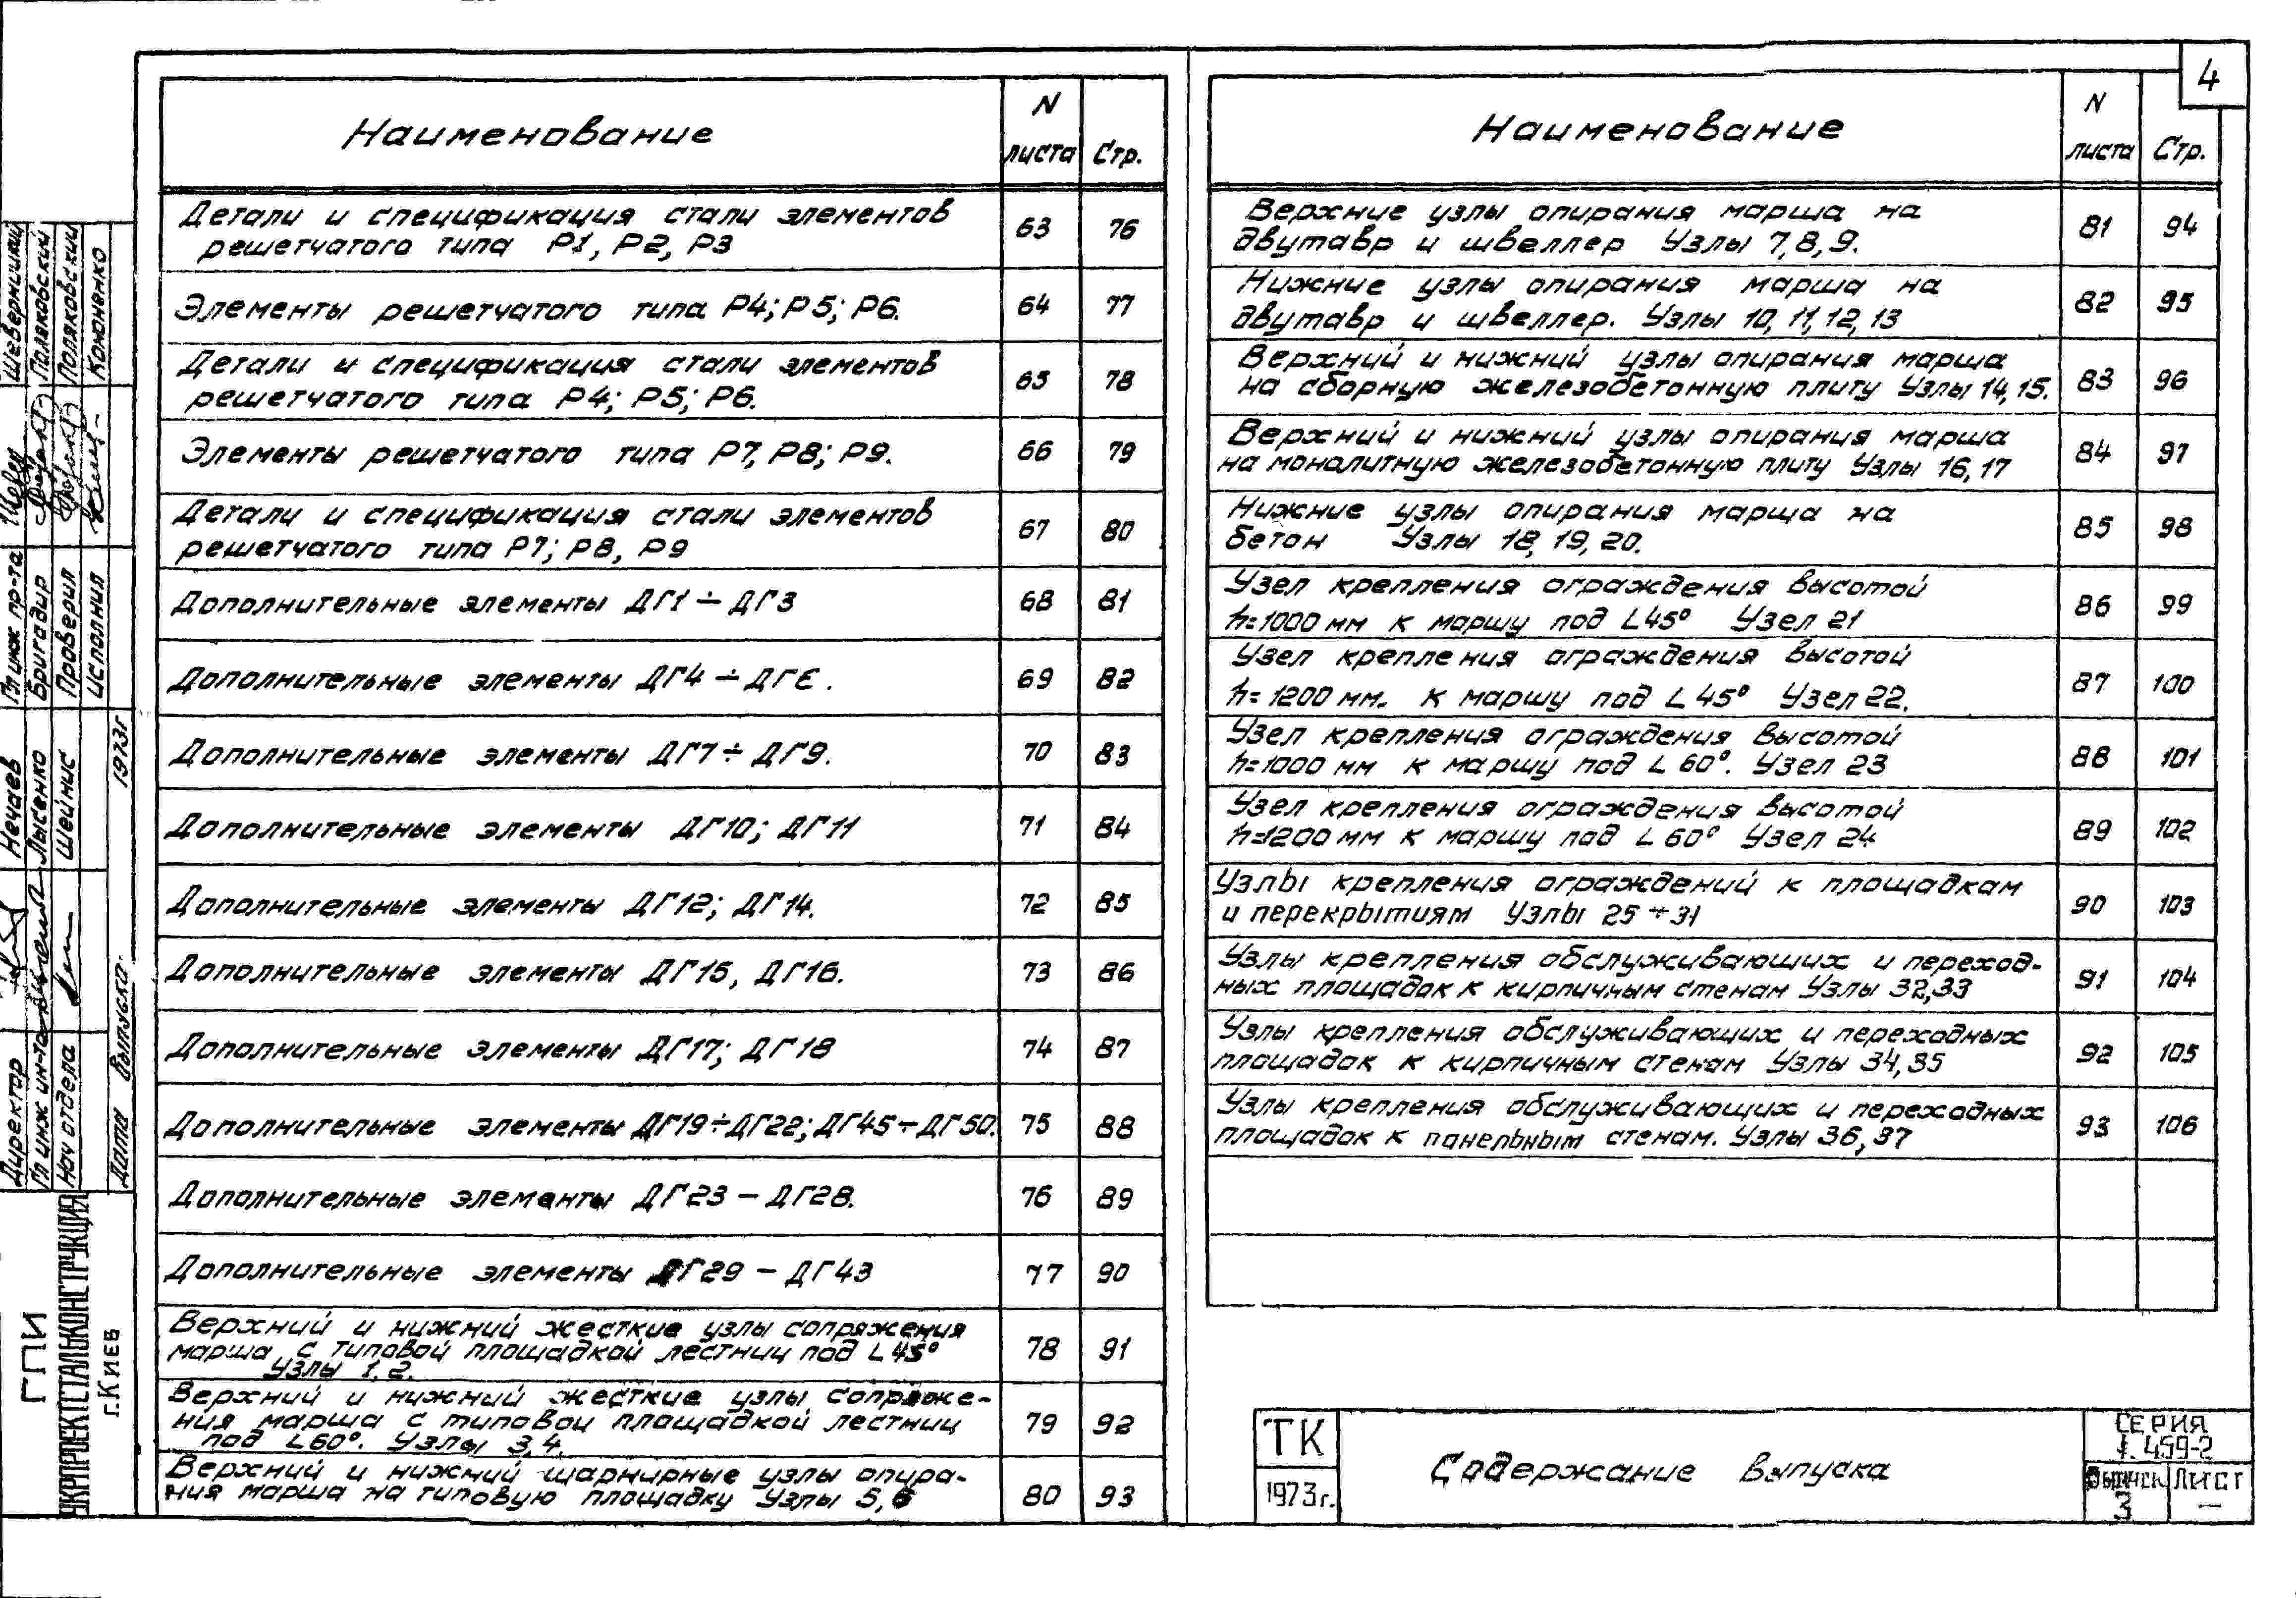 4
Наименование
N листа
Стр.
Детали и спецификация стали элементов
решетчатого типа Р1, Р2, Р3
63
76
Элементы решетчатого типа Р4; Р5; Р6.
64
77
Детали и спецификация стали элементов
решетчатого типа Р4; Р5; Р6.
65
78
Элементы решетчатого типа Р7, Р8; Р9.
66
79
Детали и спецификация стали элементов
решетчатого типа Р7; Р8, Р9
67
80
Дополнительные элементы ДГ1 ÷ ДГ3
68
81
Дополнительные элементы ДГ4 ÷ ДГ6.
69
82
Дополнительные элементы ДГ7 ÷ ДГ9.
70
83
Дополнительные элементы ДГ10; ДГ11
71
84
Дополнительные элементы ДГ12; ДГ14.
72
85
Дополнительные элементы ДГ15, ДГ16.
73
86
Дополнительные элементы ДГ17; ДГ18
74
87
Дополнительные элементы ДГ19÷ДГ22; ДГ45÷ДГ50.
75
88
Дополнительные элементы ДГ23 – ДГ28.
76
89
Дополнительные элементы ДГ29 – ДГ43
77
90
Верхний и нижний жесткие узлы сопряжения
марша с типовой площадкой лестниц под ∟45°
Узлы 1,2.
78
91
Верхний и нижний жесткие узлы сопряже-
ния марша с типовой площадкой лестниц
под ∟60°. Узлы 3,4.
79
92
Верхний и нижний шарнирные узлы опира-
ния марша на типовую площадку Узлы 5,6
80
93
Наименование
N листа
Стр.
Верхние узлы опирания марша на
двутавр и швеллер Узлы 7,8,9.
81
94
Нижние узлы опирания марша на
двутавр и швеллер. Узлы 10, 11, 12, 13
82
95
Верхний и нижний узлы опирания марша
на сборную железобетонную плиту Узлы 14,15.
83
96
Верхний и нижний узлы опирания марша
на монолитную железобетонную плиту Узлы 16,17
84
97
Нижние узлы опирания марша на
бетон Узлы 18, 19, 20.
85
98
Узел крепления ограждения высотой
h=1000 мм к маршу под ∟45° Узел 21
86
99
Узел крепления ограждения высотой
h=1200 мм. к маршу под ∟45° Узел 22.
87
100
Узел крепления ограждения высотой
h=1000 мм к маршу под ∟60°. Узел 23
88
101
Узел крепления ограждения высотой
h=1200 мм к маршу под ∟60° Узел 24
89
102
Узлы крепления ограждений к площадкам
и перекрытиям Узлы 25 ÷ 31
90
103
Узлы крепления обслуживающих и переход-
ных площадок к кирпичным стенам Узлы 32,33
91
104
Узлы крепления обслуживающих и переходных
площадок к кирпичным стенам Узлы 34,35
92
105
Узлы крепления обслуживающих и переходных
площадок к панельным стенам. Узлы 36,37
93
106
ТК
1973 г.
Содержание выпуска
СЕРИЯ
1.459-2
Выпуск
3
Лист
—
Гл инж пр-та
Шеверницкий
Бригадир
Поляковский
Проверил
Поляковский
Исполнил
Кононенко
Директор
Нечаев
Гл инж ин-та
Лысенко
Нач отдела
Шейнис
Дата выпуска
1973г
ГПИ
УКРПРОЕКТСТАЛЬКОНСТРУКЦИЯ
г.Киев